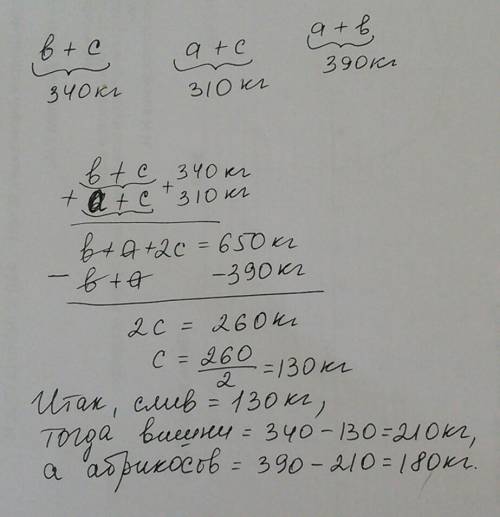 в + с а + с а + в
340кг 310кг 390кг
в + с + 340кг
+ а + с 310кг
в + а + 2с = 650кг
– в + а – 390кг
2с = 260кг
с = 260/2 = 130кг
Итак, слив = 130кг,
тогда вишни = 340 – 130 = 210кг,
а абрикосов = 390 – 210 = 180кг.